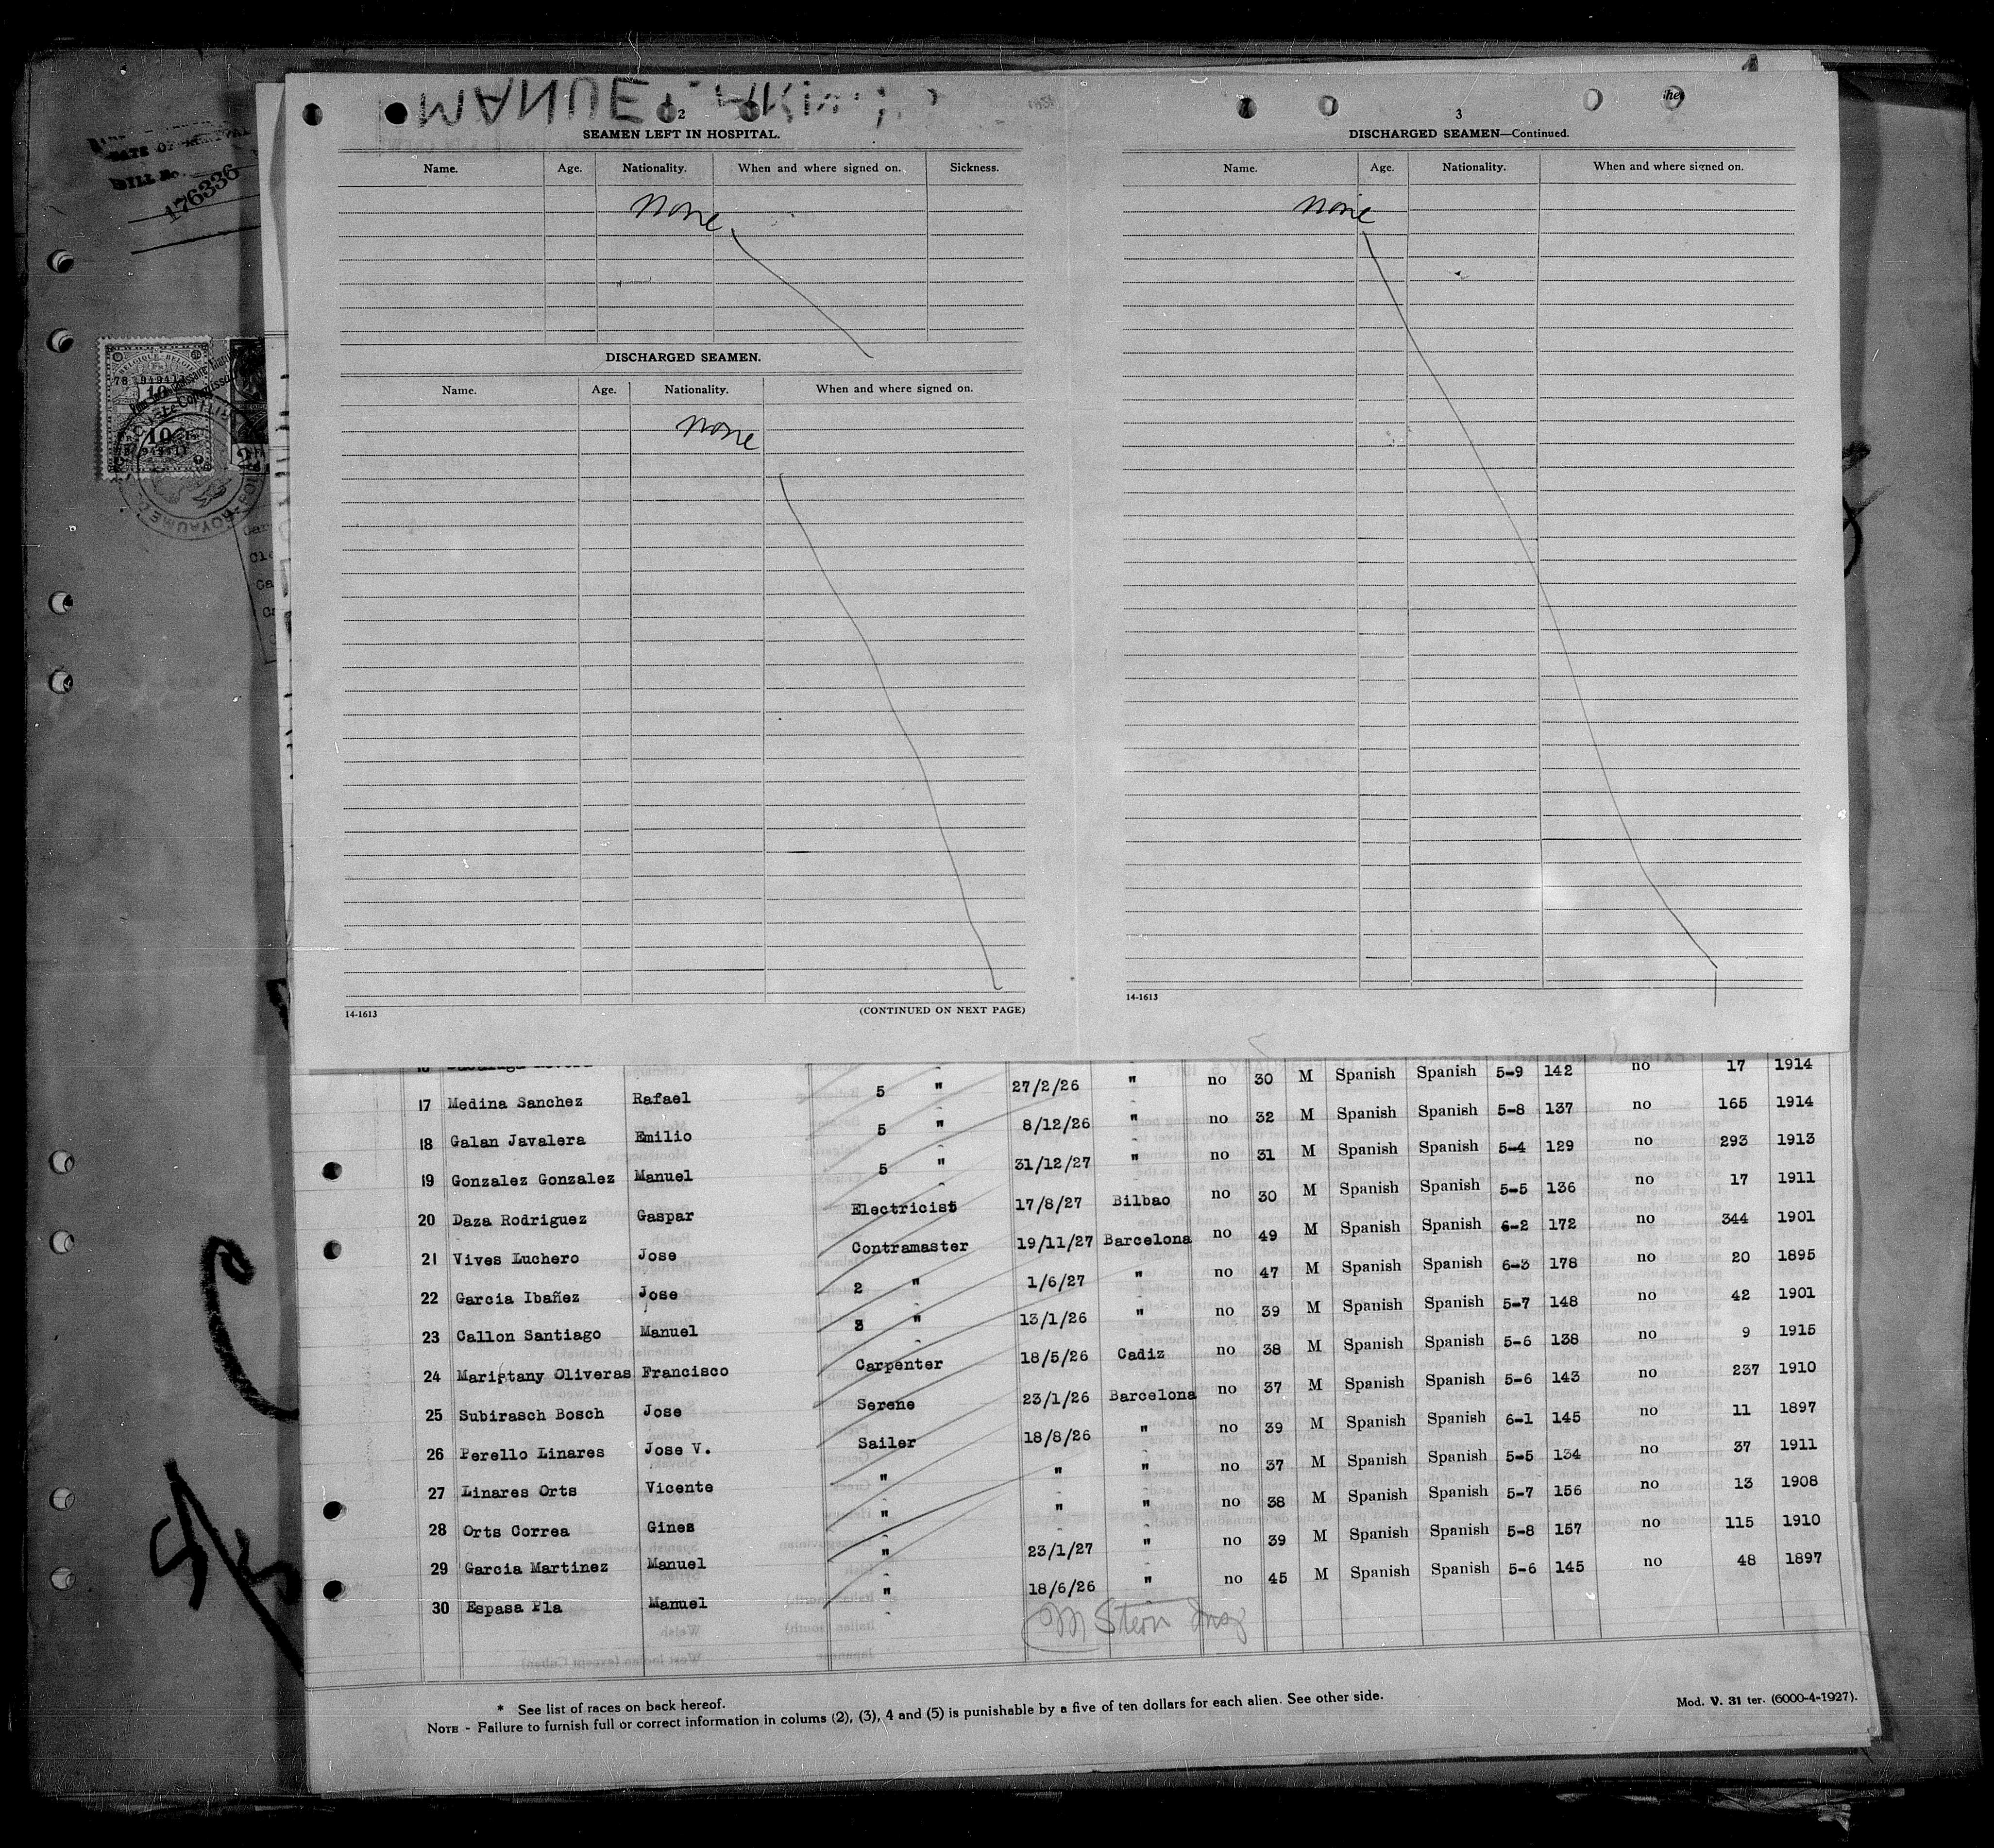 DATE OF
BILL No.
176336
BELGIQUE-BELGIE
10
MANUEL
2
SEAMEN LEFT IN HOSPITAL.
Name. Age. Nationality. When and where signed on. Sickness.
None
DISCHARGED SEAMEN.
Name. Age. Nationality. When and where signed on.
None
14-1613 (CONTINUED ON NEXT PAGE)
3
DISCHARGED SEAMEN—Continued.
Name. Age. Nationality. When and where signed on.
None
14-1613
17 Medina Sanchez Rafael 5 " 27/2/26 " no 30 M Spanish Spanish 5-9 142 no 17 1914
18 Galan Javalera Emilio 5 " 8/12/26 " no 32 M Spanish Spanish 5-8 137 no 165 1914
19 Gonzalez Gonzalez Manuel 5 " 31/12/27 " no 31 M Spanish Spanish 5-4 129 no 293 1913
20 Daza Rodriguez Gaspar Electricist 17/8/27 Bilbao no 30 M Spanish Spanish 5-5 136 no 17 1911
21 Vives Luchero Jose Contramaster 19/11/27 Barcelona no 49 M Spanish Spanish 6-2 172 no 344 1901
22 Garcia Ibañez Jose 2 " 1/6/27 " no 47 M Spanish Spanish 6-3 178 no 20 1895
23 Callon Santiago Manuel 3 " 13/1/26 " no 39 M Spanish Spanish 5-7 148 no 42 1901
24 Marigtany Oliveras Francisco Carpenter 18/5/26 Cadiz no 38 M Spanish Spanish 5-6 138 no 9 1915
25 Subirasch Bosch Jose Serene 23/1/26 Barcelona no 37 M Spanish Spanish 5-6 143 no 237 1910
26 Perello Linares Jose V. Sailer 18/8/26 " no 39 M Spanish Spanish 6-1 145 no 11 1897
27 Linares Orts Vicente " " " no 37 M Spanish Spanish 5-5 134 no 37 1911
28 Orts Correa Gines " " " no 38 M Spanish Spanish 5-7 156 no 13 1908
29 Garcia Martinez Manuel " 23/1/27 " no 39 M Spanish Spanish 5-8 157 no 115 1910
30 Espasa Pla Manuel " 18/6/26 " no 45 M Spanish Spanish 5-6 145 no 48 1897
M Stein Insp
* See list of races on back hereof.
NOTE - Failure to furnish full or correct information in colums (2), (3), 4 and (5) is punishable by a five of ten dollars for each alien. See other side.
Mod. V. 31 ter. (6000-4-1927).